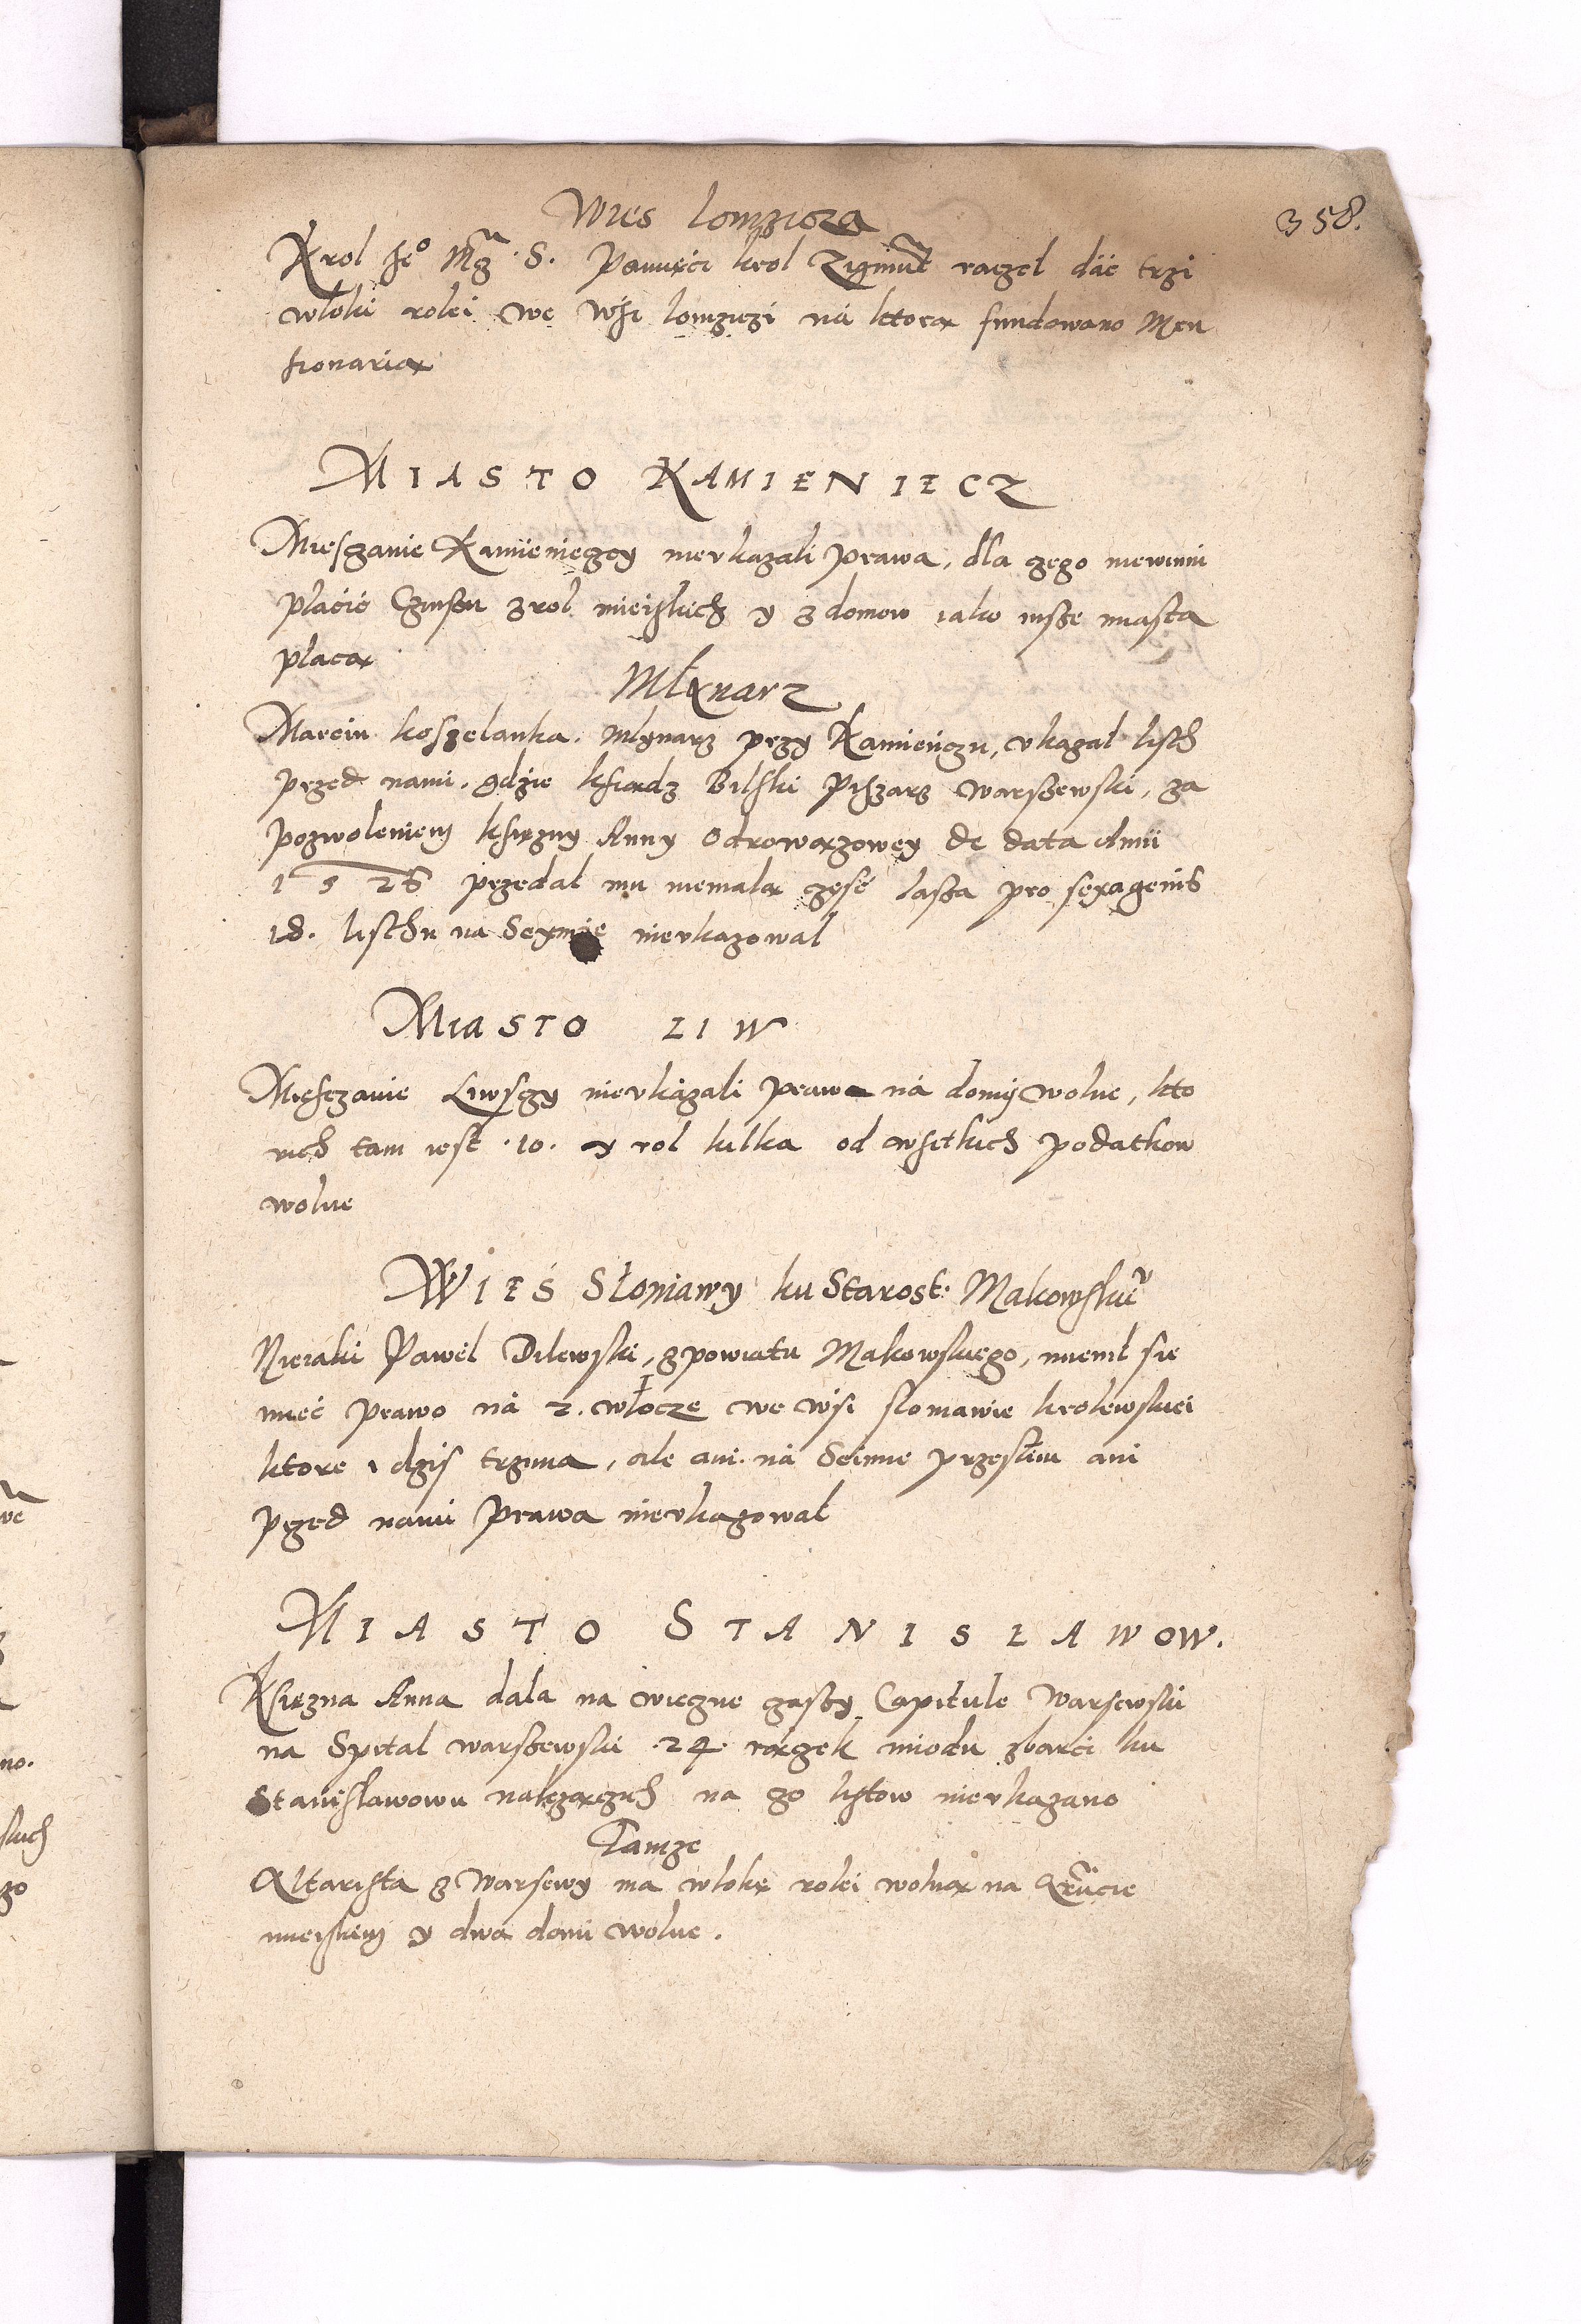 Wies lomzicza
358.
Krol Je° Mcz S. Pamięci krol Zigmūt raczel dáć trzi
wloki rolei we wsi lomziczi ná ktorą fundowano Men
sionarią
MIASTO KAMIENIECZ
Miesczanie Kamienieczcy nieukazali prawa, dla czego niewinni
płacić Czinszu z rol mieiskich y z domow iako insze miasta
placą
Młynarz
Marcin koszelanka. Mlynarz przy Kamieńczu, ukazal listh
przed nami. gdzie ksiądz Bilski Piszarz Warszewski, za
pozwoleniem księzny Anny Odrowązowey de data Anni
1526 przedal mu niemalą część lassa pro sexagenis
18. listhu na Seymie nieukazowal
MIASTO LIW
Miesczanie Liwsczy nieukázali prawa ná domy wolne, kto
rich tam iest .10. y rol kilka od wsitkich podatkow
wolne
WIES Słoniawy ku Starost. Makowskie
Nieiaki Paweł Dilewski, z powiatu Makowskiego, mienil sie
mieć prawo ná 2. włocze we wsi sloniawie krolewskiei
ktore i dzis trzima, ale ani ná Seimie przesłim ani
przed nami prawa nieukazowal
MIASTO STANISŁAWOW.
Księzna Anna dala na wieczne czaszy Capitule Warsewski
na Spital warszewski .24. rączek miodu z barci ku
Stanisławowu nalezączich na co listow nieukazano
Tamze
Altarista z Warsewy ma wlokę rolei wolną na Grūcie
mieiskiem y dwá domi wolne.